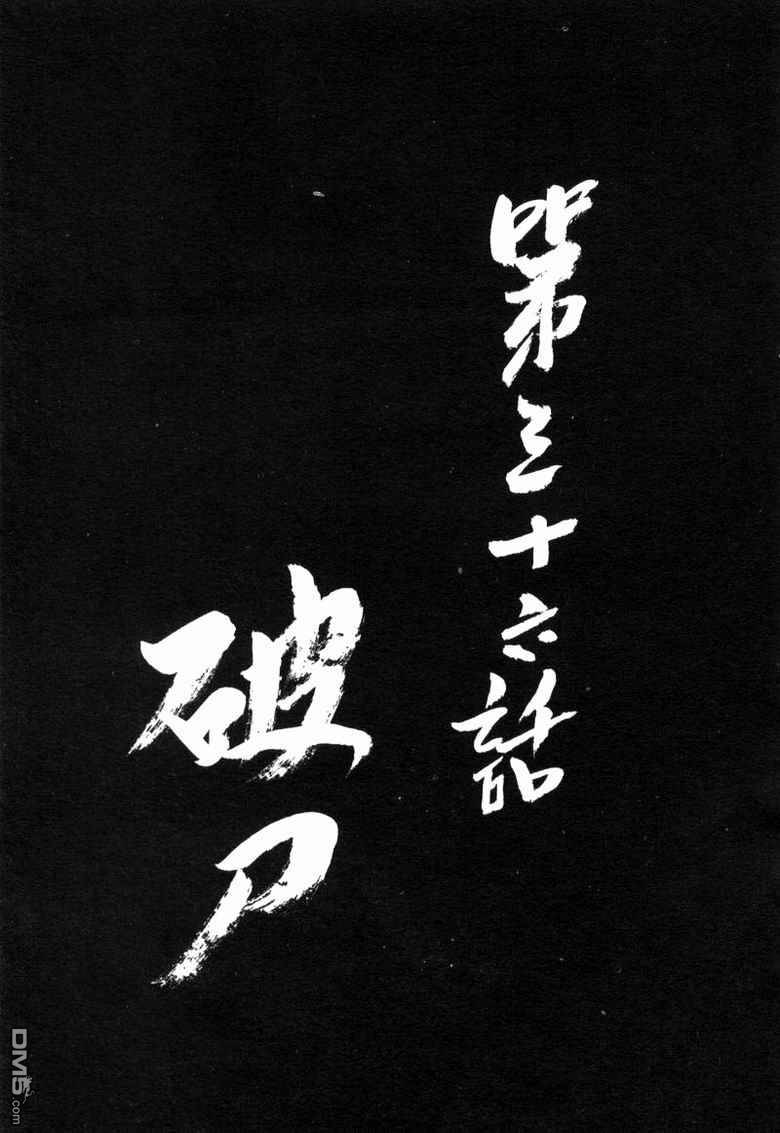 第三十六話
破刀
DM5.com